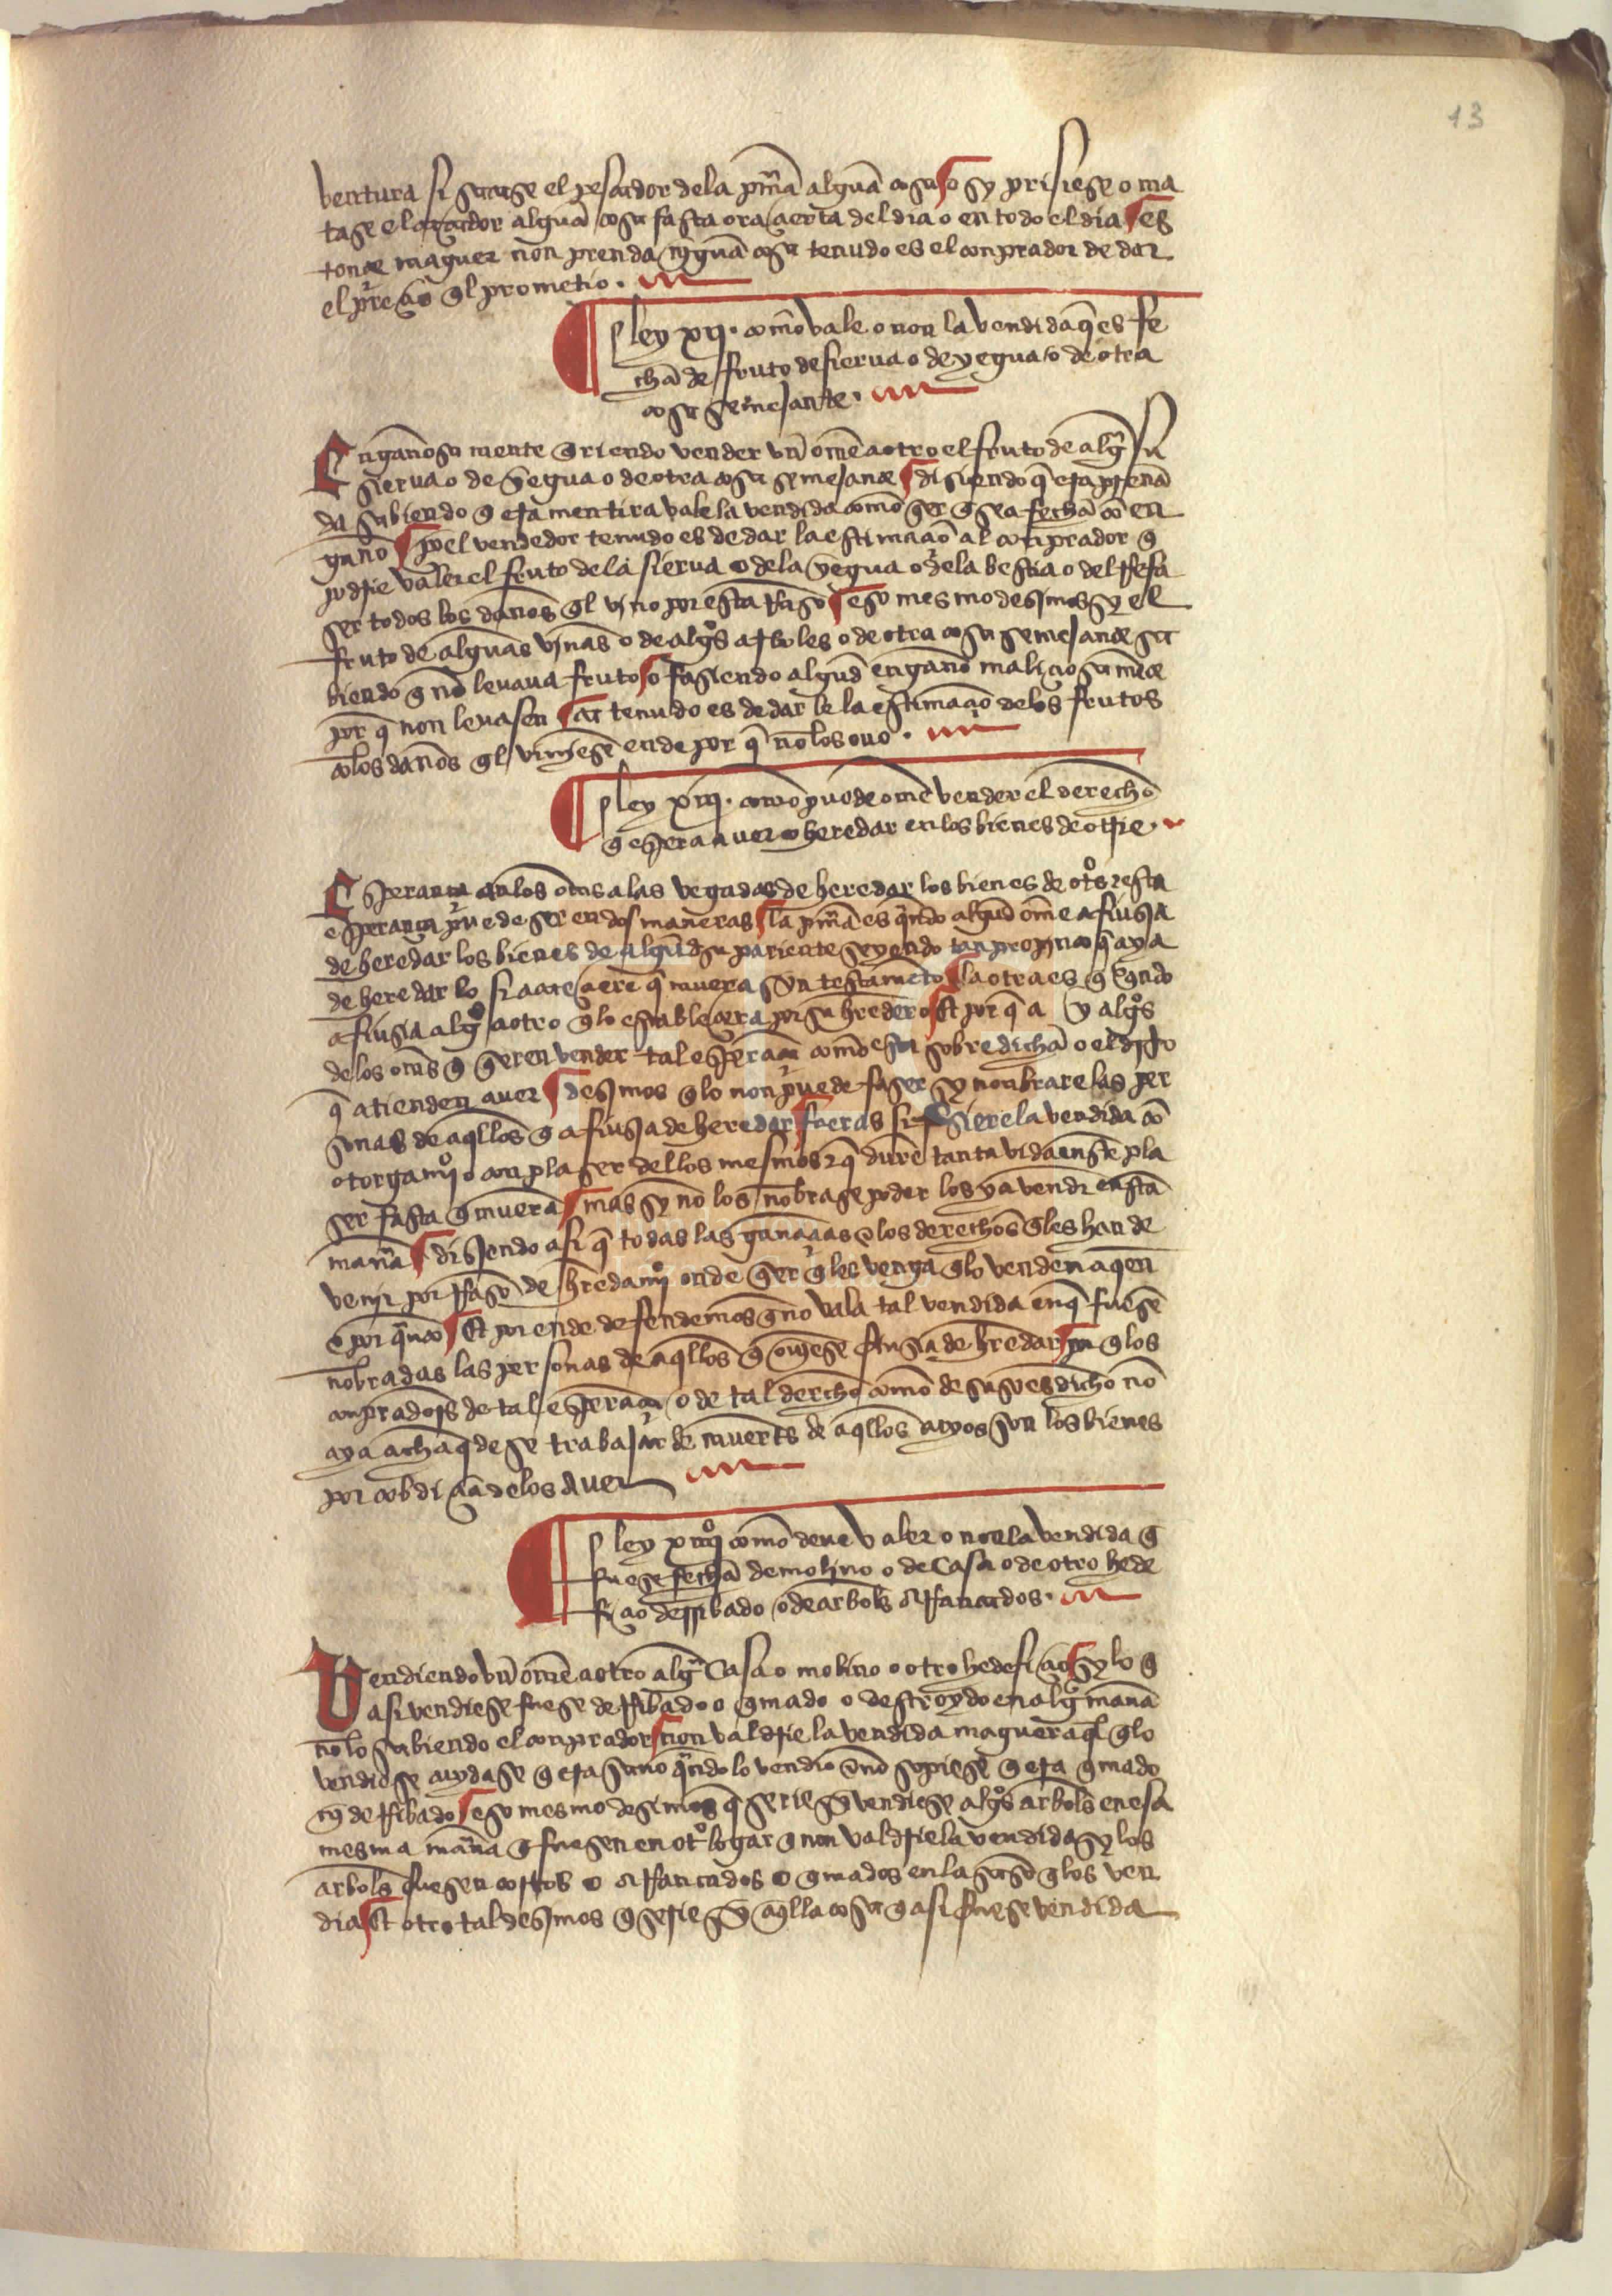 13
ventura si sacase el pesador dela pmā alguā cosa o sy prisiese o ma
tase el caçador alguā cosa fasta ora çierta del dia o en todo el dia es
tonçe maguer non prenda njguā cosa tenudo es el conprador de dar
el preçio ql prometio .
ley xij . comō vale o non la vendida q̄ es fe
chā de fruto de sierua o de yegua o de otra
cosa semejante .
Enganosa mente q̄riendo vender vn̄ om̄e a otro el fruto de algā su
sierua o de yegua o de otra cosa semejançe disiendo q̄ era prenā
da sabiendo q̄ era mentira vale la vendida comō q̄er q̄ sea fechā cō en
gano el vendedor tenudo es de dar la estimaçiō al conprador q̄
podrie valer el fruto dela sierua o dela yegua o dela bestia o del
ser todos los danos ql vino por esta rrasō eso mesmo desimos sy el
fruto de alguās vjnas o de algōs arboles o de otra cosa semejançe sa
biendo q̄ nō leuaua fruto o fasiendo algud engano maliçiosa mēte
por q̄ non leuasen ca tenudo es de dar le la estimaçiō delos frutos
cō los danos ql vinjesē ende por q̄ nō los ouo .
ley xiij . comō puede om̄e vender el derechō
q̄ espera auer o heredar en los bienes de otrie .
Esperança an los om̄s a las vegadas de heredar los bienes de otōs esta
esperança puede ser en dos maneras la pmā es q̄ndo algud om̄e a fiusia
de heredar los bienes de algud su pariente seyendo tan propinco q̄ aya
de heredar lo si acaeçiere q̄ muera syn testamēto la otra es q̄ q̄ndo
a fiusia algō a otro q̄ lo estableçera por su hredero Et por q̄ a y algōs
delos om̄s q̄ q̄eren vender tal esperāça comō esta sobre dichā o el drchō
q̄ atienden auer desimos q̄ lo non puede faser sy nonbrare las per
sonas de aqllos q̄ a fiusia de heredar fueras si fisiere la vendida cō
otorgamjō o con plaser dellos mesmos q̄ durē tanta vida en este pla
ser fasta q̄ muera mas sy nō los nōbrase poder los ya vender en esta
manā disiendo asi q̄ todas las ganaçias o los derechōs q̄ les han de
venjr por rrasō de hredamjō onde q̄er q̄ les venga q̄ lo venden a qen
e por q̄nto Et por ende defendemos q̄ nō vala tal vendida en q̄ fuesē
nōbradas las personas de aqllos q̄ oujese fiusia de hredar q̄ los
conpradores de tal esperāça o de tal derechō comō de suso es dichō nō
aya achāq̄ de se trabajar de muertes de aqllos cuyos son los bienes
por cobdiçia delos Auer
ley xiiijō comō deue valer o non la vendida q̄
fuese fechā de molino o de Casa o de otro hede
fiçio derribado o de arboles arrancados .
Vendiendo vn̄ om̄e a otro algā Casa o molino o otro hedefiçio sy lo q̄
asi vendiese fuese derribado o q̄mado o destroydo en algā manā
nō lo sabiendo el conprador non valdrie la vendida maguer aql q̄ lo
vendiese cuydase q̄ era sano q̄ndo lo vendio o nō sopiese q̄ era q̄mado
nj derribado eso mesmo desimos q̄ serie sy vendiese algōs arboles en esa
mesma manā q̄ fuesen en otō logar q̄ non valdrie la vendida sy los
arboles fuesen cortados o arrancados o q̄mados en la sasō q̄ los ven
dia Et otro tal desimos q̄ serie sy aqlla cosa q̄ asi fuese vendida